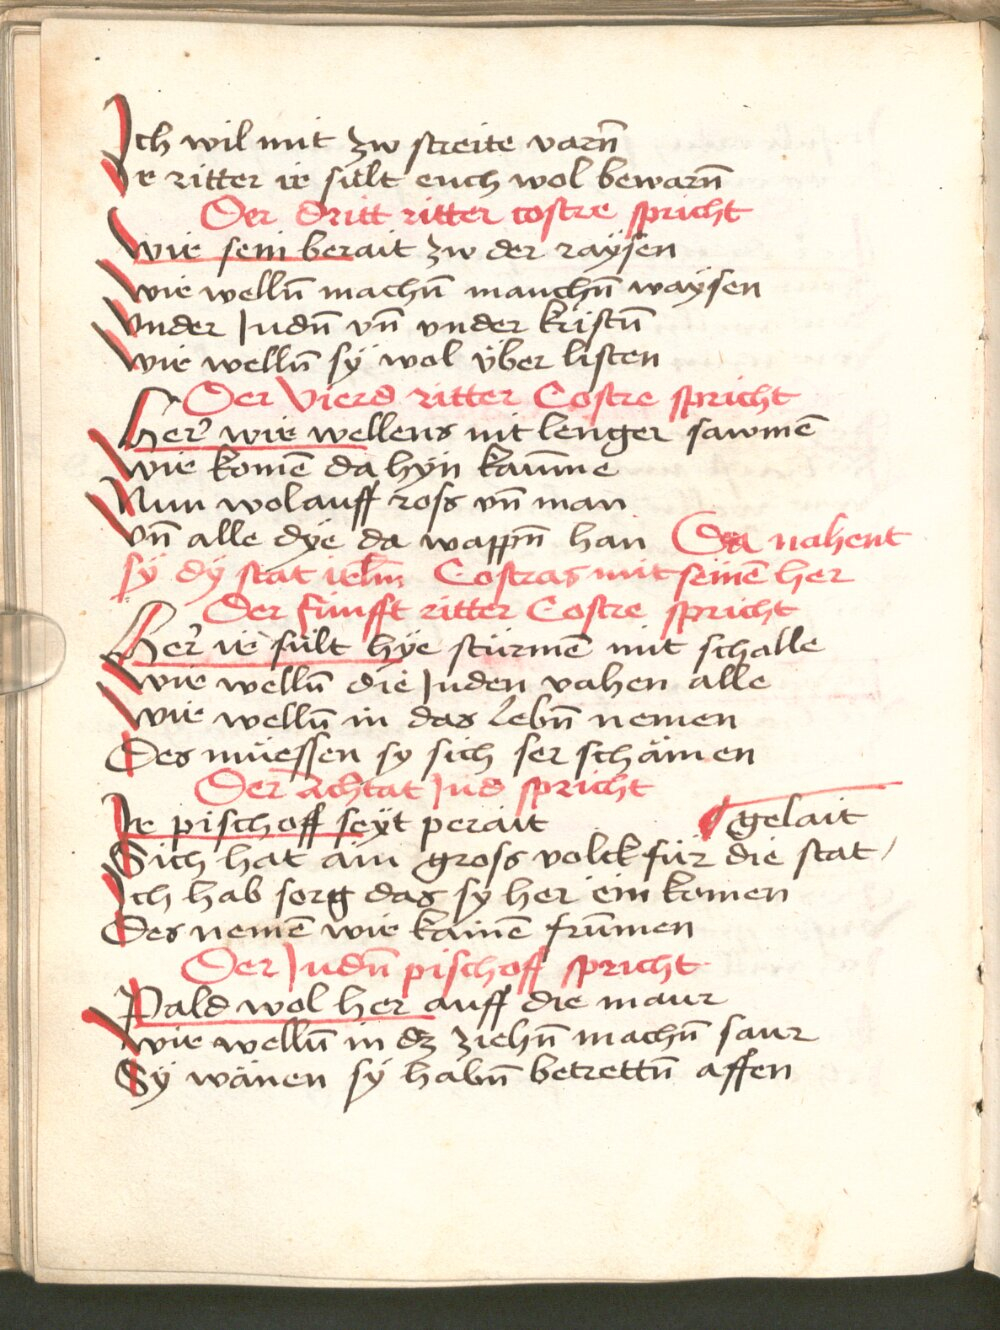 Ich wil mit zw streite varn̄
Ir ritter ir sült euch wol bewarn̄
Der dritt ritter costre spricht
Wir sein berait zw der raÿsen
Wir welln̄ machn̄ manchn̄ waÿsen
Vnder Judn̄ vn̄ vnder kristn̄
Wir welln̄ sÿ wol über listen
Der Vierd ritter Costre spricht
Her wir wellens nit lenger sawmē
Wir komē da hÿn kaūme
Nun wolauff ross vn̄ man
Vn̄ alle dÿe da wappn̄ han Da nahent
sÿ dÿ stat irlm̄ Costras mit seinē her
Der fünfft ritter Costre spricht
Her ir sült hÿe stürmē mit schalle
Wir welln̄ die Juden vahen alle
Wir welln̄ in das Lebn̄ nemen
Des müessen sy sich ser schämen
Der achtat Jud spricht
Ir pischoff seÿt perait gelait
Sich hat ain gross volck für die stat /
Ich hab sorg das sy her ein komen
Des nemē wir kainē frūmen
Der Judn̄ pischoff spricht
Pald wol her auff die maur
Wir welln̄ in dz ziehn̄ machn̄ saur
Sÿ wänen sÿ habn̄ betrettn̄ affen